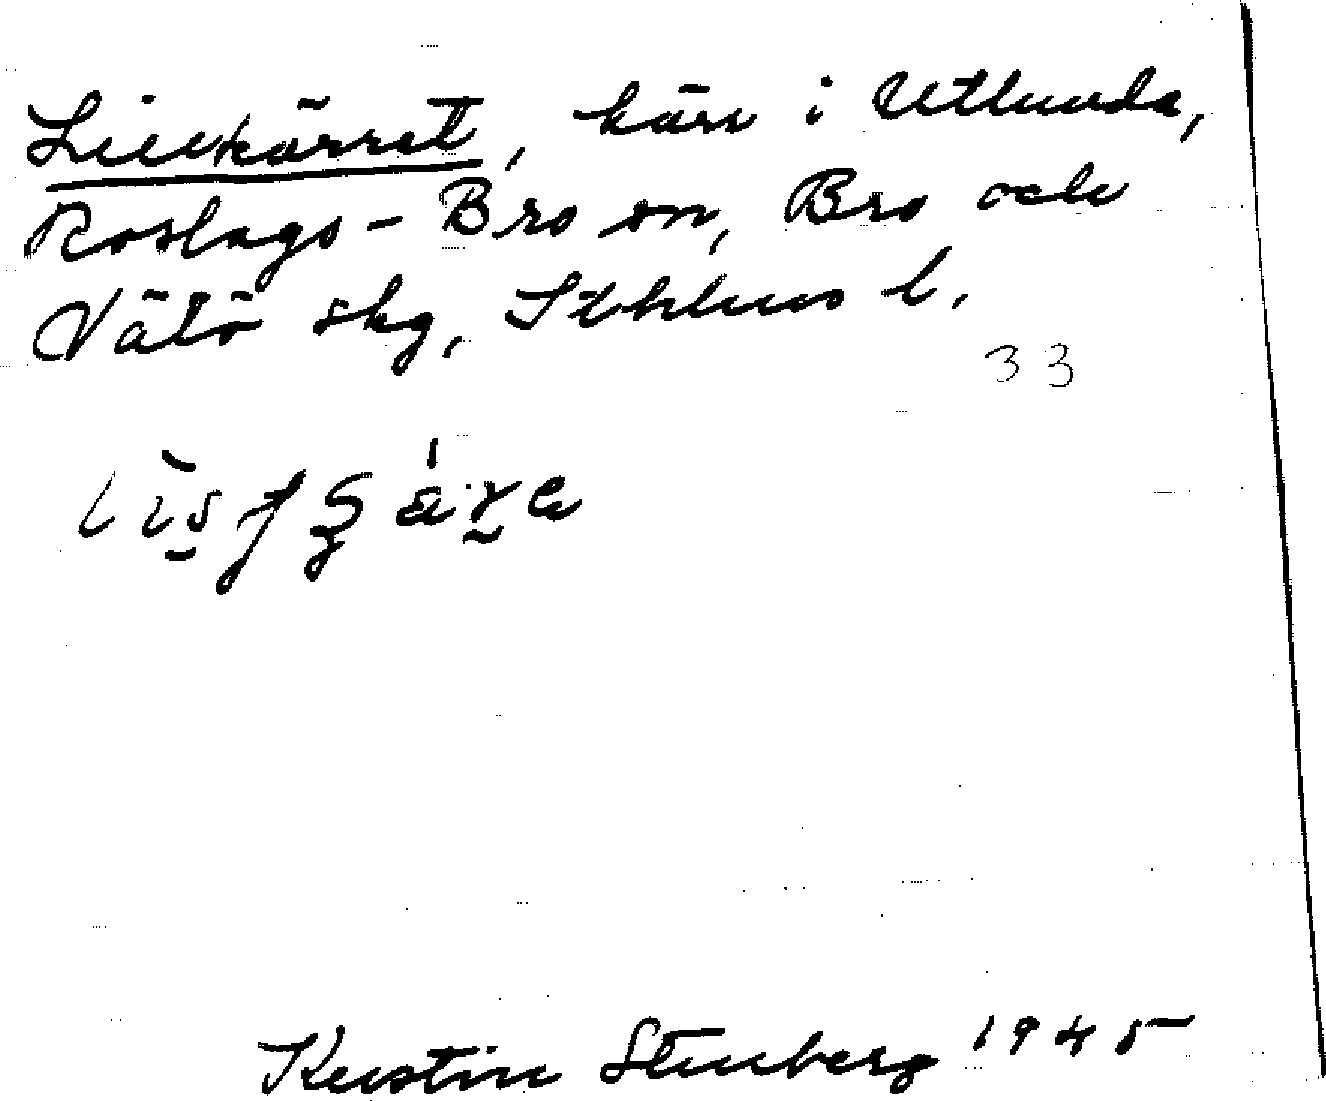 Lillkärret, kärr i Utlunda,
Roslags-Bro sn, Bro och
Vätö skg, Sthlms l.
33
Kerstin Stenberg 1945